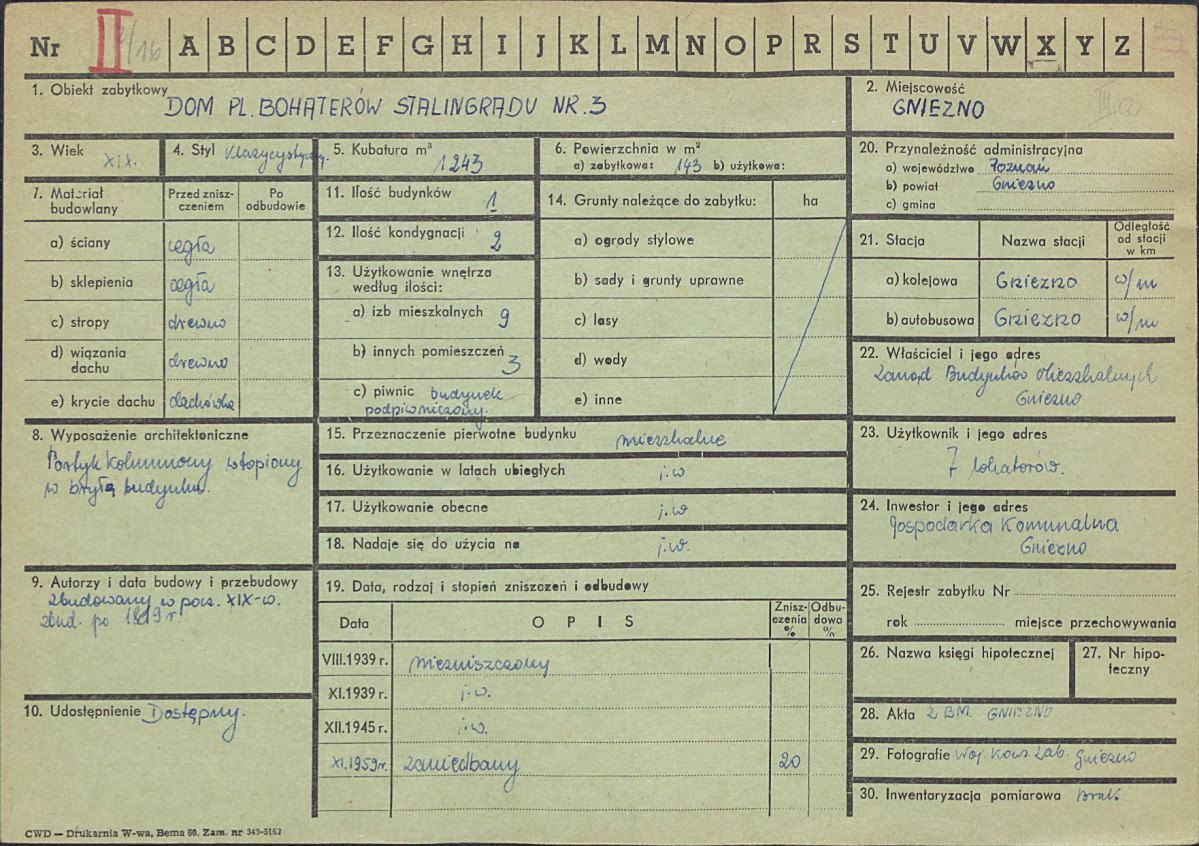 Nr II 2/16 A B C D E F G H I J K L M N O P R S T U V W X Y Z
1. Obiekt zabytkowy DOM PL. BOHATERÓW STALINGRADU NR. 3
2. Miejscowość
GNIEZNO III a
3. Wiek XIX.
4. Styl Klasycystyczny.
5. Kubatura m³
1243
6. Powierzchnia w m²
a) zabytkowa: 143 b) użytkowa:
20. Przynależność administracyjna
a) województwo Poznań
b) powiat Gniezno
c) gmina
7. Materiał budowlany
Przed znisz-
czeniem
Po
odbudowie
a) ściany cegła
b) sklepienia cegła
c) stropy drewno
d) wiązania
dachu drewno
e) krycie dachu dachówka
11. Ilość budynków 1
12. Ilość kondygnacji 2
13. Użytkowanie wnętrza
według ilości:
a) izb mieszkalnych 9
b) innych pomieszczeń 3
c) piwnic budynek
podpiwniczony.
14. Grunty należące do zabytku: ha
a) ogrody stylowe
b) sady i grunty uprawne
c) lasy
d) wody
e) inne
21. Stacja Nazwa stacji
Odległość
od stacji
w km
a) kolejowa GNIEZNO w/m
b) autobusowa GNIEZNO w/m
22. Właściciel i jego adres
Zarząd Budynków Mieszkalnych
Gniezno
8. Wyposażenie architektoniczne
Portyk kolumnowy wtopiony
w bryłę budynku.
15. Przeznaczenie pierwotne budynku mieszkalne
16. Użytkowanie w latach ubiegłych j.w
17. Użytkowanie obecne j.w
18. Nadaje się do użycia na j.w.
23. Użytkownik i jego adres
7 lokatorów.
24. Inwestor i jego adres
Gospodarka Komunalna
Gniezno
9. Autorzy i data budowy i przebudowy
zbudowany w pocz. XIX-w.
zbud. po 1819 r.
19. Data, rodzaj i stopień zniszczeń i odbudowy
Data OPIS
Znisz-
czenia
%
Odbu-
dowa
%
VIII.1939 r. niezniszczony
XI.1939 r. j.w.
XII.1945 r. j.w.
XI.1959 r. zaniedbany 20
25. Rejestr zabytku Nr
rok miejsce przechowywania
26. Nazwa księgi hipotecznej
27. Nr hipo-
teczny
10. Udostępnienie Dostępny.
28. Akta Z.B.M. GNIEZNO
29. Fotografie Woj. Kons. Zab. Gniezno
30. Inwentaryzacja pomiarowa Brak
CWD — Drukarnia W-wa, Bema 60. Zam. nr 349-5162